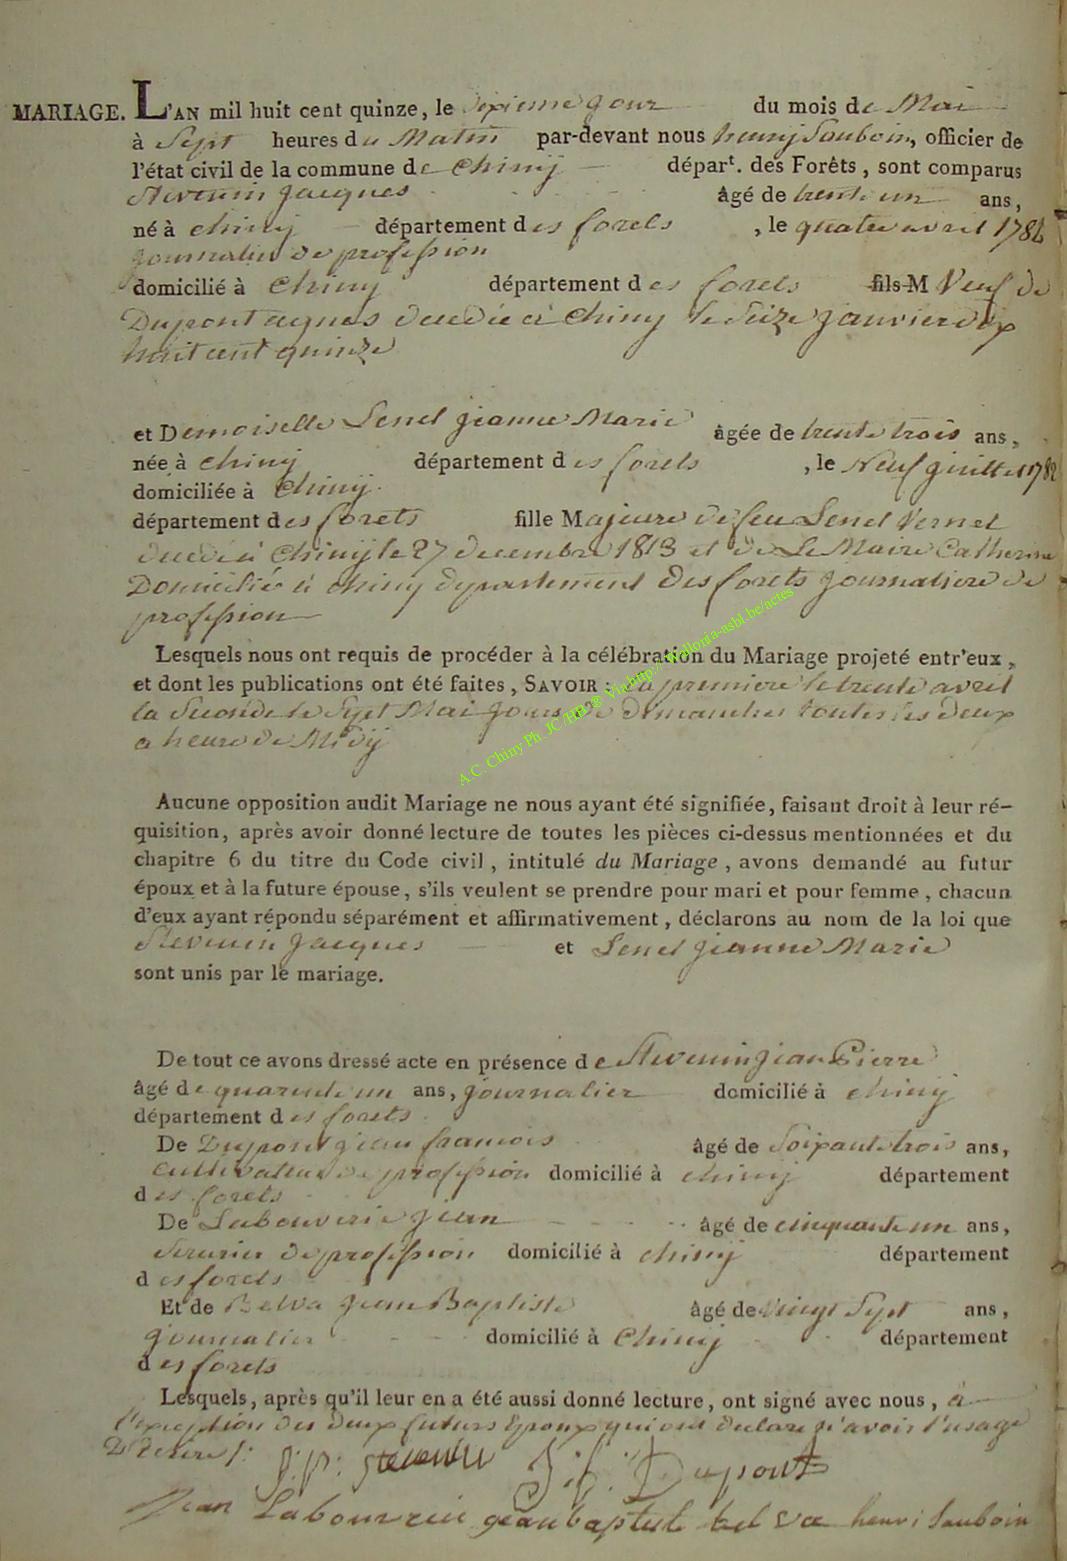 MARIAGE. L'AN mil huit cent quinze, le dixieme jour du mois de Mai
à Sept heures du Matin par-devant nous henry Sauboin, officier de
l'état civil de la commune de Chiny départ. des Forêts, sont comparus
Stevenin Jacques âgé de trente un ans,
né à chiny département des forets, le quatre avril 1784
journalier de profession
domicilié à Chiny département des forets fils M Veuf de
Dupont agnes decedée à Chiny le Seize janvier dix
huit cent quinze
et Demoiselle Lenel jeanne Marie âgée de trente trois ans,
née à chiny département des forets, le Neuf juillet 1782
domiciliée à Chiny
département des forets fille Majeure de feu Lenel Vernel
decedé à Chiny le 27 decembre 1813 et de Le Maire Catherine
Domicilié à chiny departement des forets journaliere de
profession
Lesquels nous ont requis de procéder à la célébration du Mariage projeté entr'eux,
et dont les publications ont été faites, SAVOIR: la premiere le trente avril
la Seconde le Sept Mai jours de dimanches toutes les deux
a heure de Midy
A.C. Chiny Ph. JC /HB @ Via http:// Wallonia-asbl.be/actes
Aucune opposition audit Mariage ne nous ayant été signifiée, faisant droit à leur ré-
quisition, après avoir donné lecture de toutes les pièces ci-dessus mentionnées et du
chapitre 6 du titre du Code civil, intitulé du Mariage, avons demandé au futur
époux et à la future épouse, s'ils veulent se prendre pour mari et pour femme, chacun
d'eux ayant répondu séparément et affirmativement, déclarons au nom de la loi que
Stevenin Jacques et Lenel jeanne Marie
sont unis par le mariage.
De tout ce avons dressé acte en présence de Stevenin jean Pierre
âgé de quarente un ans, journalier domicilié à chiny
département des forets
De Dupont jean francois âgé de Soixante trois ans,
cultivateur de profession domicilié à chiny département
des forets
De Labouverie jean âgé de cinquante un ans,
Serurier de profession domicilié à chiny département
des forets
Et de Belva jean Baptiste âgé de vingt Sept ans,
journalier domicilié à Chiny département
des forets
Lesquels, après qu'il leur en a été aussi donné lecture, ont signé avec nous, à
l'exception des deux futurs Epoux qui ont declare n'avoir l'usage
D'Ecrire /:
j: p: stevenin J: f: Dupont
Jean Labouverie jean baptiste bel va henri Sauboin